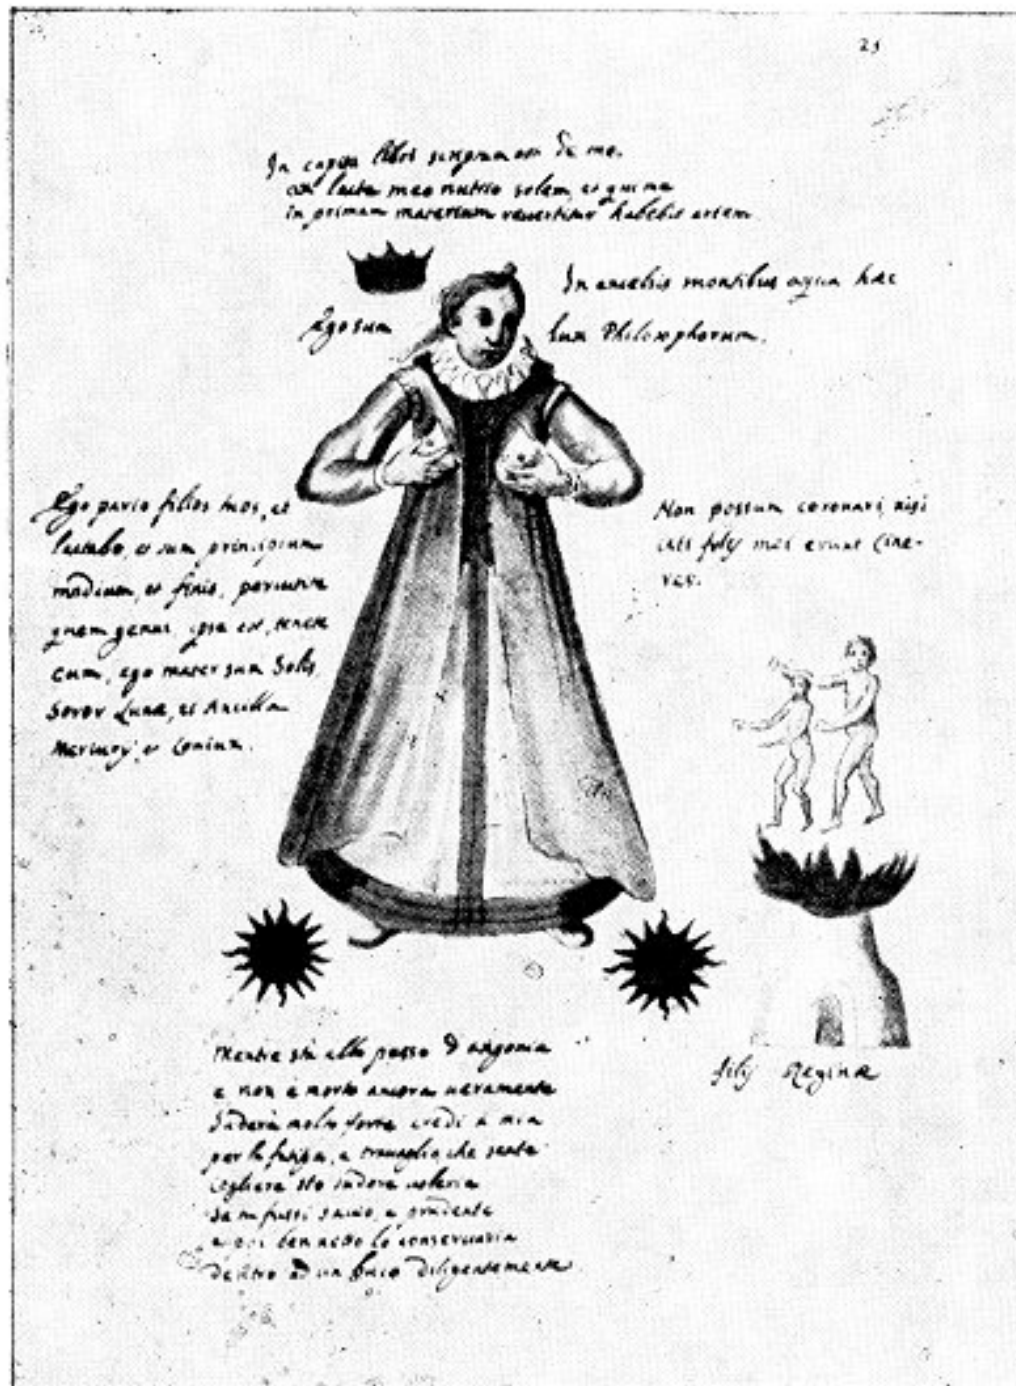 25
In capite libri scriptum est de me.
lacte meo nutrio solem, et qui me
in primam materiam revertitur habebit artem
In excelsis montibus aqua hæc
Ego sum
lux Philosophorum.
Ego pario filios meos, et
lactabo, et sum principium
medium, et finis,
quem genui ipse est, tenete
eum, ego mater sum Solis,
Soror Lunæ, et Ancilla
Mercurij, et Coniux.
Non possum coronari, nisi
isti filij mei erunt Cine-
res.
filij Reginæ
Mentre sta allo passo d'angonia
e non è morto ancora veramente
Suderà molto forte credi a mia
per la fatiga, e travaglio, che sente
cogliere sto sudore
se tu fussi savio, e prudente
e poi ben netto lo conservaria
dentro ad un buco diligentemente